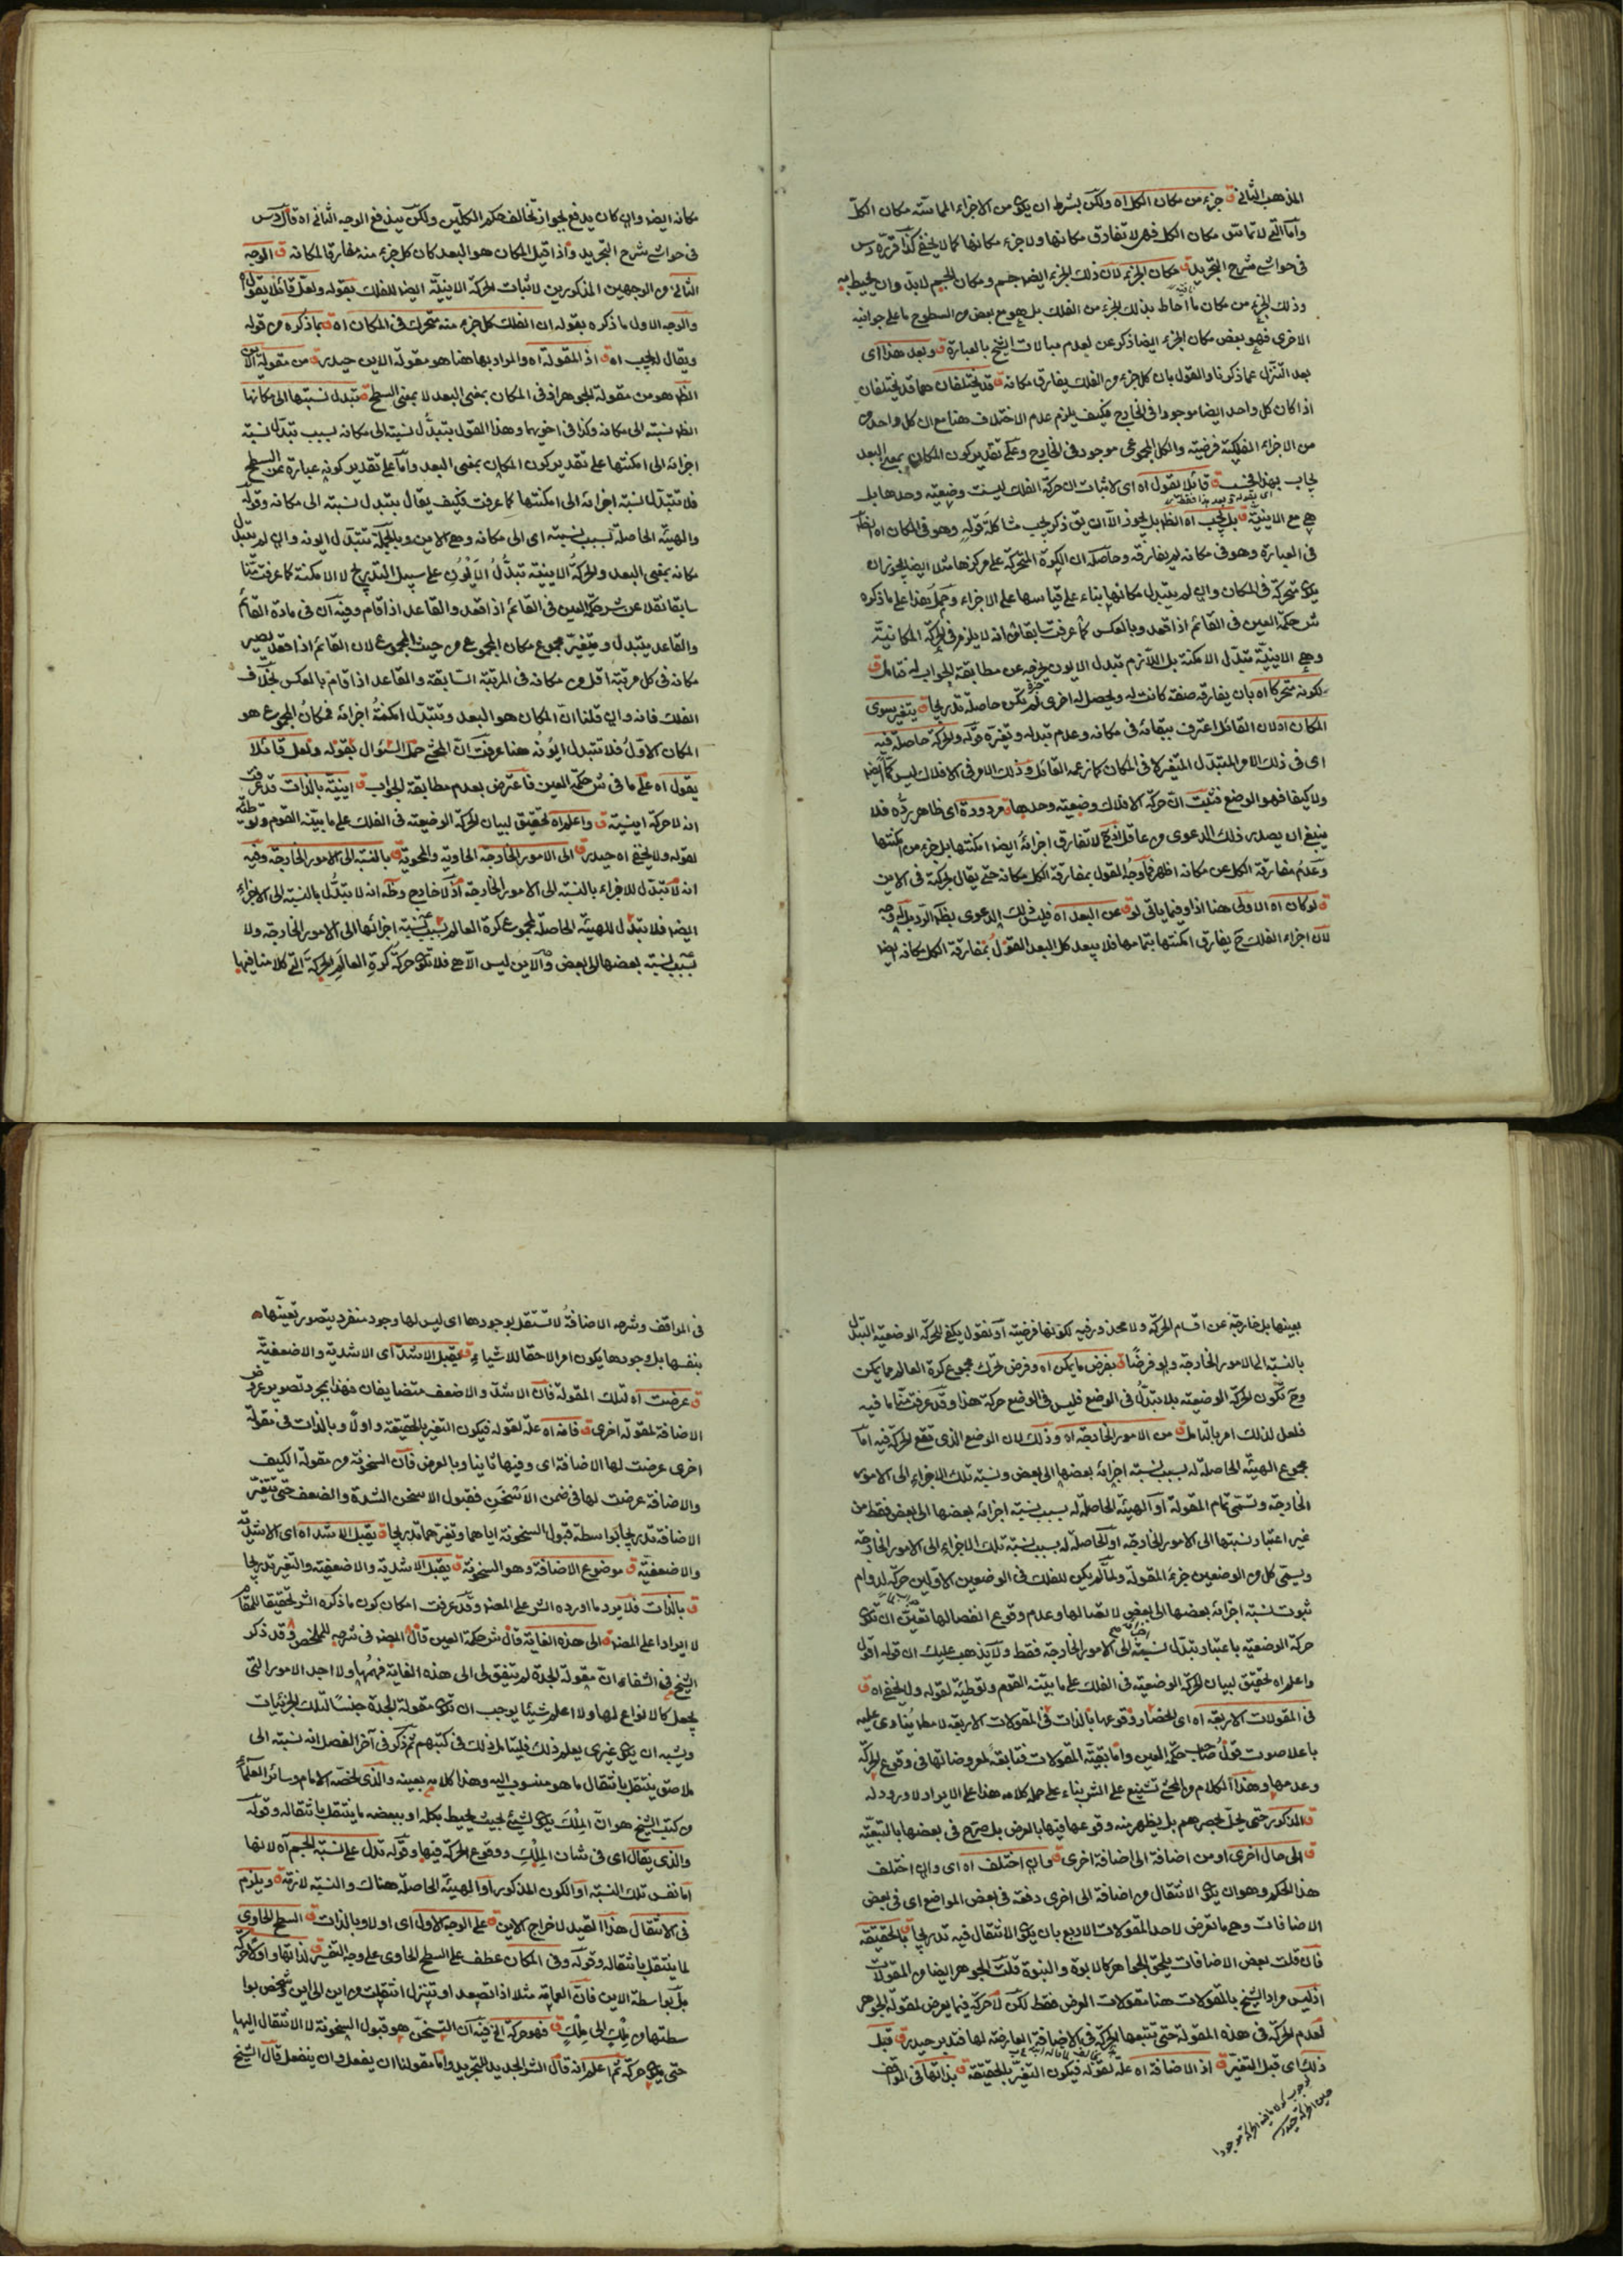 المذهب الثاني ق جزء من مكان الكل اه ولكن بشرط ان يكون من الاجزاء المماسة مكان الكل
واما التي لا تماس مكان الكل فهى لا تفارق مكانها ولا جزء مكانها كما لا يخفى كذا قرره س
فى حواشى شرح التجريد ق مكان الجزء لان ذلك الجزء ايضا جسم ومكان الجسم لابد وان يحيط به
وذلك الجزء من مكان ما احاط بذلك الجزء من الفلك بل هو مع بعض من السطوح ما على جوانبه
الاخرى فهو بعض مكان الجزء ايضا ذكر عن لعدم مبالات الشيخ بالعبارة ق وبعد هذا اى
بعد التنزل عما ذكرنا والقول بان كل جزء من الفلك يفارق مكانه ق قد يختلفان هما قد يختلفان
اذا كان كل واحد ايضا موجودا فى الخارج فكيف يلزم عدم الاختلاف هنا مع ان كل واحد من
من الاجزاء الفلكية فرضية والكل المجموعى موجود فى الخارج وعلى تقدير كون المكان بمعنى البعد
يجاب بهذا فحسب ق قائلا يقول اه اى لاثبات ان حركة الفلك ليست وضعية وحدها بل
هى مع الاينية ق بل يجب اه الظ بل يجوز الا ان يق ذكر يجب مشاكلة قوله وهو فى المكان اه نظير
فى العبارة وهو فى مكانه لم يفارقه وحاصله ان الكرة المتحركة على مركزها مثلا ايضا يجوز ان
يكون متحركة فى المكان وان لم يتبدل مكانها بناء على قياسها على الاجزاء وحمل هذا على ما ذكره
ش حكمة العين فى القائم اذا قعد وبالعكس كما عرفت سابقا من انه لا يلزم فى الحركة المكانية
وهى الاينية تبدل الامكنة بل اللازم تبدل الايون يخرجه عن مطابقة الجواب له فتامل ق
لكونه متحركا اه بان يفارقه صفة كانت له ويحصل له اخرى لم تكن حاصلة تدريجا ق يتغير سوى
المكان اه لان القائل اعترف ببقائه فى مكانه وعدم تبدله وتغيره قوله والحركة حاصلة فيه
اى فى ذلك الامر المتبدل المتغير لا فى المكان كما زعمه القائل وذلك الامر فى الافلاك ليس كما ايضا
ولا كيفا فهو الوضع فثبت ان حركة الافلاك وضعية وحدها ق مردودة اى ظاهر رده فلا
ينبغى ان يصدر ذلك الدعوى من عاقل لا تفارق اجزائه ايضا امكنتها بل جزء من امكنتها
وعدم مفارقة الكل عن مكانه اظهر فاوجه القول بمفارقة الكل مكانه حتى يقال بحركة فى الاين
ق لو كان اه الاولى هنا اذا وفيما ياتى لو ق عن البعد اه فليس ذلك الدعوى بظ الرد بل له وجه
لان اجزاء الفلك ح يفارق امكنتها بتمامها فلا يبعد كل البعد القول بمفارقة الكل مكانه ايضا
مكانه ايضا وان كان يدفع بجواز تخالف حكم الكليين ولكن يندفع الوجه الثانى اه قال س
فى حواشى شرح التجريد واذا قيل المكان هو البعد كان كل جزء منه مفارقا لمكانه ق الوجه
الثانى من الوجهين المذكورين لاثبات الحركة الاينية ايضا للفلك بقوله ولعل قائلا يقول
والوجه الاول ما ذكره بقوله ان الفلك كل جزء منه متحرك فى المكان اه ق بما ذكره من قوله
ويقال المجيب اه ق اذ المقولة اه والمراد بها هنا هو مقولة الاين حيدر ق من مقولة الاين
الظ هو من مقولة الجوهر اذ فى المكان بمعنى البعد لا بمعنى السطح ق تبدل نسبتها الى مكانها
الظ نسبته الى مكانه وكذا فى اخويها وهذا القول بتبدل نسبته الى مكانه بسبب تبدل نسبة
اجزائه الى امكنتها على تقدير كون المكان بمعنى البعد واما على تقدير كونه عبارة عن السطح
فلا تتبدل نسبة اجزائه الى امكنتها كما عرفت فكيف يقال بتبدل نسبته الى مكانه وقوله
والهيئة الحاصلة بسبب نسبته اى الى مكانه وهى الاين وبالجملة تتبدل ايونه وان لم يتبدل
مكانه بمعنى البعد والحركة الاينية تبدل الايون على سبيل التدريج لا الامكنة كما عرفت منا
سابقا نقلا عن شرح حكمة العين فى القائم اذا قعد والقاعد اذا قام وفيه ان فى مادة القائم
والقاعد يتبدل ويتغير مجموع مكان المجموع من حيث المجموع لان القائم اذا قعد يصير
مكانه فى كل مرتبة اقل من مكانه فى المرتبة السابقة والقاعد اذا قام بالعكس بخلاف
الفلك فانه وان قلنا ان المكان هو البعد وتتبدل امكنة اجزائه فمكان المجموع هو
المكان الاول فلا تتبدل ايونه هنا عرفت ان المحشى حمل السؤال بقوله ولعل قائلا
يقول اه على ما فى ش حكمة العين فاعترض بعدم مطابقة الجواب ق اينية بالذات قد عرفت
انه لا حركة اينية ق واعلم اه تحقيق لبيان الحركة الوضعية فى الفلك على ما بينه القوم وتوطئة
لقوله ولا يخفى اه حيدر ق الى الامور الخارجة الحاوية والمحوية ق بالنسبة الى الامور الخارجة وفيه
انه لا تبدل للاجزاء بالنسبة الى الامور الخارجة اذ لا خارج وظ انه لا تبدل بالنسبة الى الاجزاء
ايضا فلا تبدل للهيئة الحاصلة لمجموع كرة العالم بسبب نسبة اجزائها الى الامور الخارجة ولا
بسبب نسبة بعضها الى بعض والاين ليس الا هى فلا تكون حركة كرة العالم الحركة التى كلامنا فيها
بعينها بل خارجة عن اقسام الحركة ولا محذور فيه لكونها فرضية او نقول يكفى للحركة الوضعية التبدل
بالنسبة الى الامور الخارجة ولو فرضا ق بفرض ما يكن اه وفرض تحرك مجموع كرة العالم مما يمكن
وح تكون الحركة الوضعية بلا تبدل فى الوضع فليس فى الوضع حركة هذا وقد عرفت منا ما فيه
فلعل لذلك امر بالتامل ق من الامور الخارجة اه وذلك لان الوضع الذى تقع الحركة فيه اما
مجموع الهيئة الحاصلة له بسبب نسبة اجزائه بعضها الى بعض ونسبة تلك الاجزاء الى الامور
الخارجة وتسمى تمام المقولة او الهيئة الحاصلة له بسبب نسبة اجزائه بعضها الى بعض فقط من
غير اعتبار نسبتها الى الامور الخارجة او الحاصلة له بسبب نسبة تلك الاجزاء الى الامور الخارجة
ويسمى كل من الوضعين جزء المقولة ولما لم يكن للفلك فى الوضعين الاولين حركة لدوام
ثبوت نسبة اجزائه بعضها الى بعض لاتصالها وعدم وقوع انفصالها تعين ان تكون
حركة الوضعية باعتبار تبدل نسبة الى الامور الخارجة فقط ولا يذهب عليك ان قوله اقول
واعلم اه تحقيق لبيان الحركة الوضعية فى الفلك على ما بينه القوم وتوطئة لقوله ولا يخفى اه ق
فى المقولات الاربعة اه اى انحصار وقوعها بالذات فى المقولات الاربعة لا مطلقا ينادى عليه
باعلا صوت قول صاحب حكمة العين واما بقية المقولات فتابعة لمعروضاتها فى وقوع الحركة
وعدمها وهذا الكلام من المحشى تشنيع على الش بناء على حمل كلامه هذا على الايراد لا ورود له
ق المذكور حتى يخل بحصرهم بل يظهر منه وقوعها فيها بالعرض بل صرح فى بعضها بالتبعية
ق الى حال اخرى او من اضافة الى اضافة اخرى ق وان اختلف اه اى وان اختلف
هذا الحكم وهو ان يكون الانتقال من اضافة الى اخرى دفعة فى بعض المواضع اى فى بعض
الاضافات وهى ما تعرض لاحد المقولات الاربع بان يكون الانتقال فيه تدريجا ق بالحقيقة
فان قلت بعض الاضافات يلحق الجواهر كالابوة والبنوة قلت الجوهر ايضا من المقولات
اذ ليس مراد الشيخ بالمقولات هنا مقولات العرض فقط لكن لا حركة فيما يعرض لمقولة الجوهر
لعدم الحركة فى هذه المقولة حتى تتبعها الحركة فى الاضافة العارضة لها فتدبر حيدر ق قبل
ذلك اى قبل التغير ق اذ الاضافة اه علة لقوله فيكون التغير بالحقيقة ق بذاتها فى المواقف
فى المواقف وشرحه الاضافة لا تستقل بوجودها اى ليس لها وجود منفرد يتصور تعينها
بنفسها بل وجودها يكون امرا لاحقا للاشياء ق يقبل الاشد اى الاشدية والاضعفية
ق عرضت اه لتلك المقولة فان الاشد والاضعف متضايفان فهذا مجرد تصوير عروض
الاضافة لمقولة اخرى ق فانه اه علة لقوله فيكون التغير بالحقيقة واولا وبالذات فى مقولة
اخرى عرضت لها الاضافة اى وفيها ثانيا وبالعرض فان السخونة من مقولة الكيف
والاضافة عرضت لها فى ضمن الاسخن فقبول الاسخن الشدة والضعف حتى تتغير
الاضافة تدريجا بواسطة قبول السخونة اياهما وتغيرهما تدريجا ق يقبل الاشد اه اى الاشدية
والاضعفية ق موضوع الاضافة وهو السخونة ق يقبل الاشدية والاضعفية والتغير تدريجا
ق بالذات فلا يرد ما اورده الش على المص وقد عرفت امكان كون ما ذكره الش تحقيقا للمقام
لا ايرادا على المص ق الى هذه الغاية قال ش حكمة العين قال المص فى شرحه للملخص وقد ذكر
الشيخ فى الشفاء ان مقولة الجدة لم يتفق لى الى هذه الغاية فهمها ولا اجد الامور التى
يجعل كالانواع لها ولا اعلم شيئا يوجب ان تكون مقولة الجدة جنسا لتلك الجزئيات
ويشبه ان يكون غيرى يعلم ذلك فليتامل ذلك فى كتبهم ثم ذكر فى آخر الفصل انه نسبته الى
ملاصق ينتقل بانتقال ما هو منسوب اليه وهذا كلامه بعينه والذى لخصه الامام وسائر العلماء
من كتب الشيخ هو ان الملك يكون لشئ بحيث يحيط بكله او ببعضه ما ينتقل بانتقاله وقوله
والذى يقال اى فى شان الملك ووقوع الحركة فيها وقوله تدل على نسبة الجسم اه لانها
اما نفس تلك النسبة او الكون المذكور او الهيئة الحاصلة هناك والنسبة لازمة ق ويلزم
فى الانتقال هذا القيد لاخراج الاين ق على الوجه الاول اى اولا وبالذات ق السطح الحاوى
لما ينتقل بانتقاله وقوله وفى المكان عطف على السطح الحاوى على وجه التفسير ق لذاتها واولا حركة
بل بواسطة الاين فان العمامة مثلا اذا تصعد او تنزل انتقلت من اين الى اين
سطتها من ملك الى ملك ق فهو حركة الخ فيه ان التسخن هو قبول السخونة لا الانتقال اليها
حتى يكون حركة ثم اعلم انه قال الش الجديد للتجريد واما مقولتا ان يفعل وان ينفعل قال الشيخ